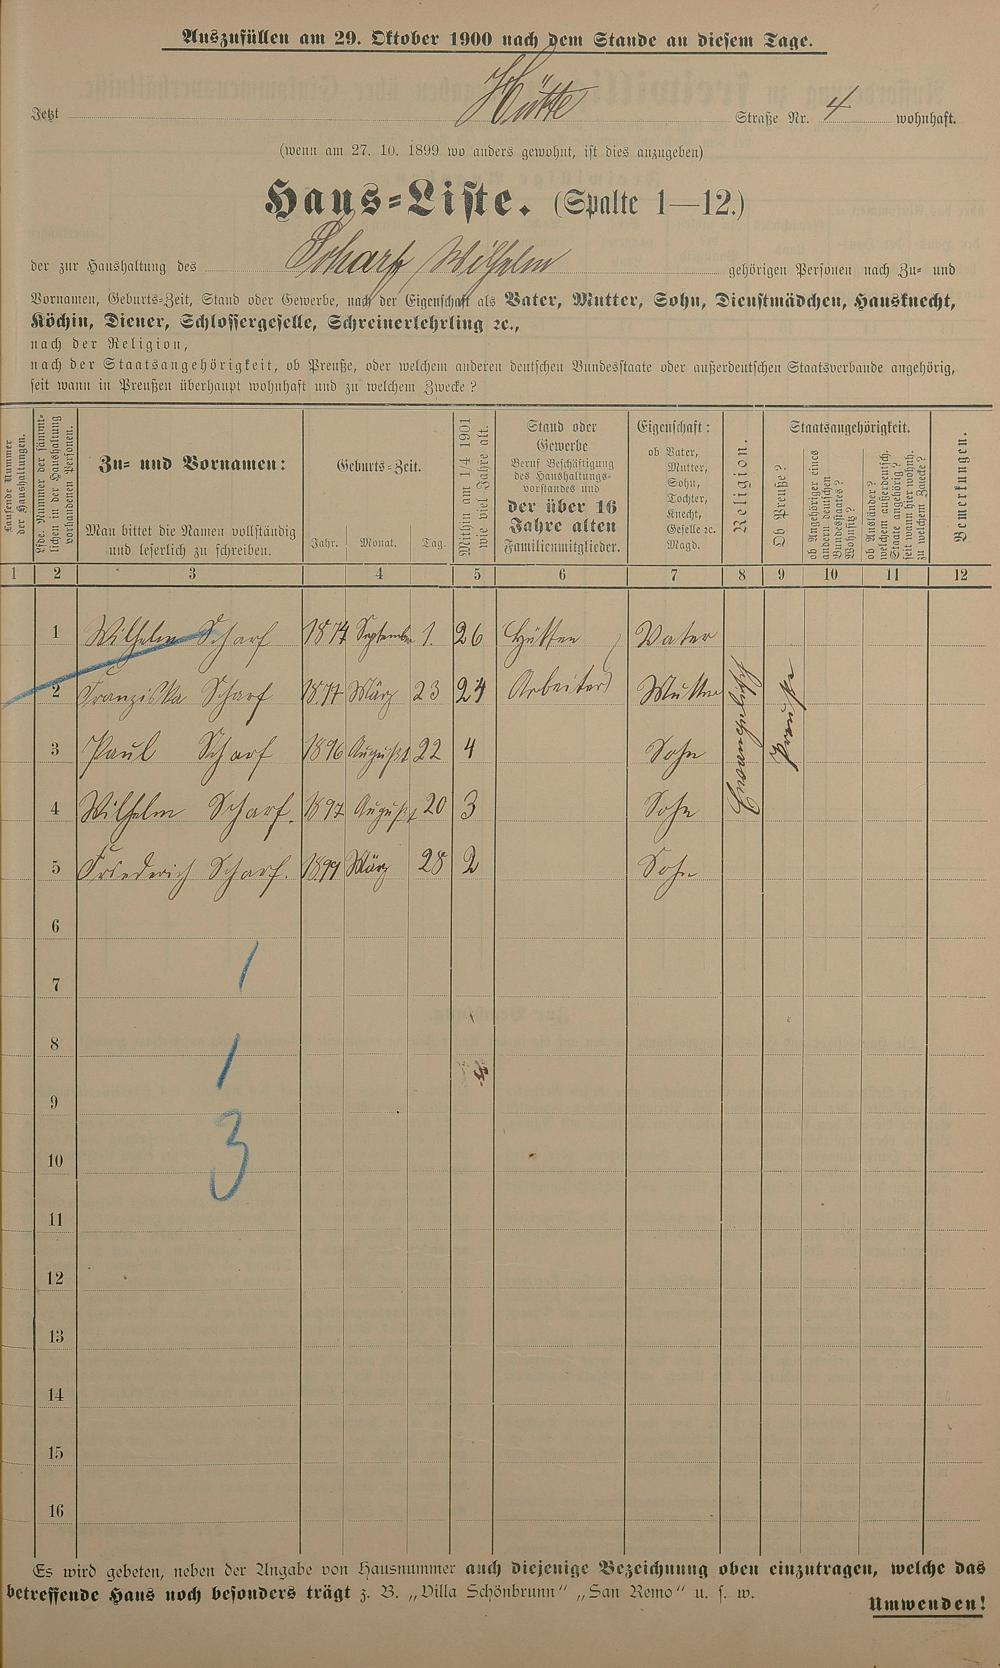 Auszufüllen am 29. Oktober 1900 nach dem Stande an diesem Tage.
Jetzt Hütte Straße Nr. 4 wohnhaft.
(wenn am 27. 10. 1899 wo anders gewohnt, ist dies anzugeben)
Haus-Liste. (Spalte 1—12.)
der zur Haushaltung des Scharf Wilhelm gehörigen Personen nach Zu- und
Vornamen, Geburts-Zeit, Stand oder Gewerbe, nach der Eigenschaft als Vater, Mutter, Sohn, Dienstmädchen, Hausknecht,
Köchin, Diener, Schlossergeselle, Schreinerlehrling ꝛc.,
nach der Religion,
nach der Staatsangehörigkeit, ob Preuße, oder welchem anderen deutschen Bundesstaate oder außerdeutschen Staatsverbande angehörig,
seit wann in Preußen überhaupt wohnhaft und zu welchem Zwecke?
Laufende Nummer
der Haushaltungen.
Lfde. Nummer der sämmt-
lichen in der Haushaltung
vorhandenen Personen.
Zu- und Vornamen:
Man bittet die Namen vollständig
und leserlich zu schreiben.
Geburts-Zeit.
Jahr. Monat. Tag.
Mithin am 1/4 1901
wie viel Jahre alt.
Stand oder
Gewerbe
Beruf Beschäftigung
des Haushaltungs-
vorstandes und
der über 16
Jahre alten
Familienmitglieder.
Eigenschaft:
ob Vater,
Mutter,
Sohn,
Tochter,
Knecht,
Geselle ꝛc.
Magd.
Religion.
Staatsangehörigkeit.
Ob Preuße?
ob Angehöriger eines
andern deutschen
Bundesstaates?
Wohnsitz?
ob Ausländer?
welchem außerdeutsch.
Staate angehörig?
seit wann hier wohnh.
zu welchem Zwecke?
Bemerkungen.
1 2 3 4 5 6 7 8 9 10 11 12
1 Wilhelm Scharf 1874 September 1. 26 Hütten Vater
2 Franziska Scharf 1877 März 23 24 Arbeiter Mutter
Evangelisch
Preuße
3 Paul Scharf 1896 August 22 4 Sohn
4 Wilhelm Scharf. 1897 August 20 3 Sohn
5 Friederich Scharf. 1899 März 28 2 Sohn
6
7 1
8 1
9
10 3
11
12
13
14
15
16
Es wird gebeten, neben der Angabe von Hausnummer auch diejenige Bezeichnung oben einzutragen, welche das
betreffende Haus noch besonders trägt z. B. „Villa Schönbrunn“ „San Remo“ u. s. w.
Umwenden!